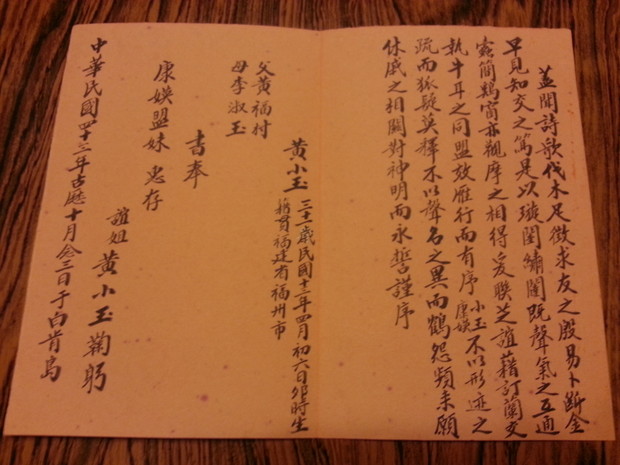 蓋聞詩歌伐木足徵求友之殷易卜斷金
早見知交之篤是以璇閨繡闥既聲氣之互通
雲簡鷄窗亦觀摩之相得爰聯芝誼藉訂蘭交
執牛耳之同盟效雁行而有序小玉康娛不以形迹之
疏而狐疑莫釋不以聲名之異而鶴怨頻來願
休戚之相關對神明而永誓謹序
黃小玉 三十一歲民國十三年四月初六日卯時生
籍貫福建省福州市
父黃福村
母李淑玉
書奉
康娛盟妹 惠存
誼姐 黃小玉 鞠躬
中華民國四十三年古曆十月念三日于白肯島